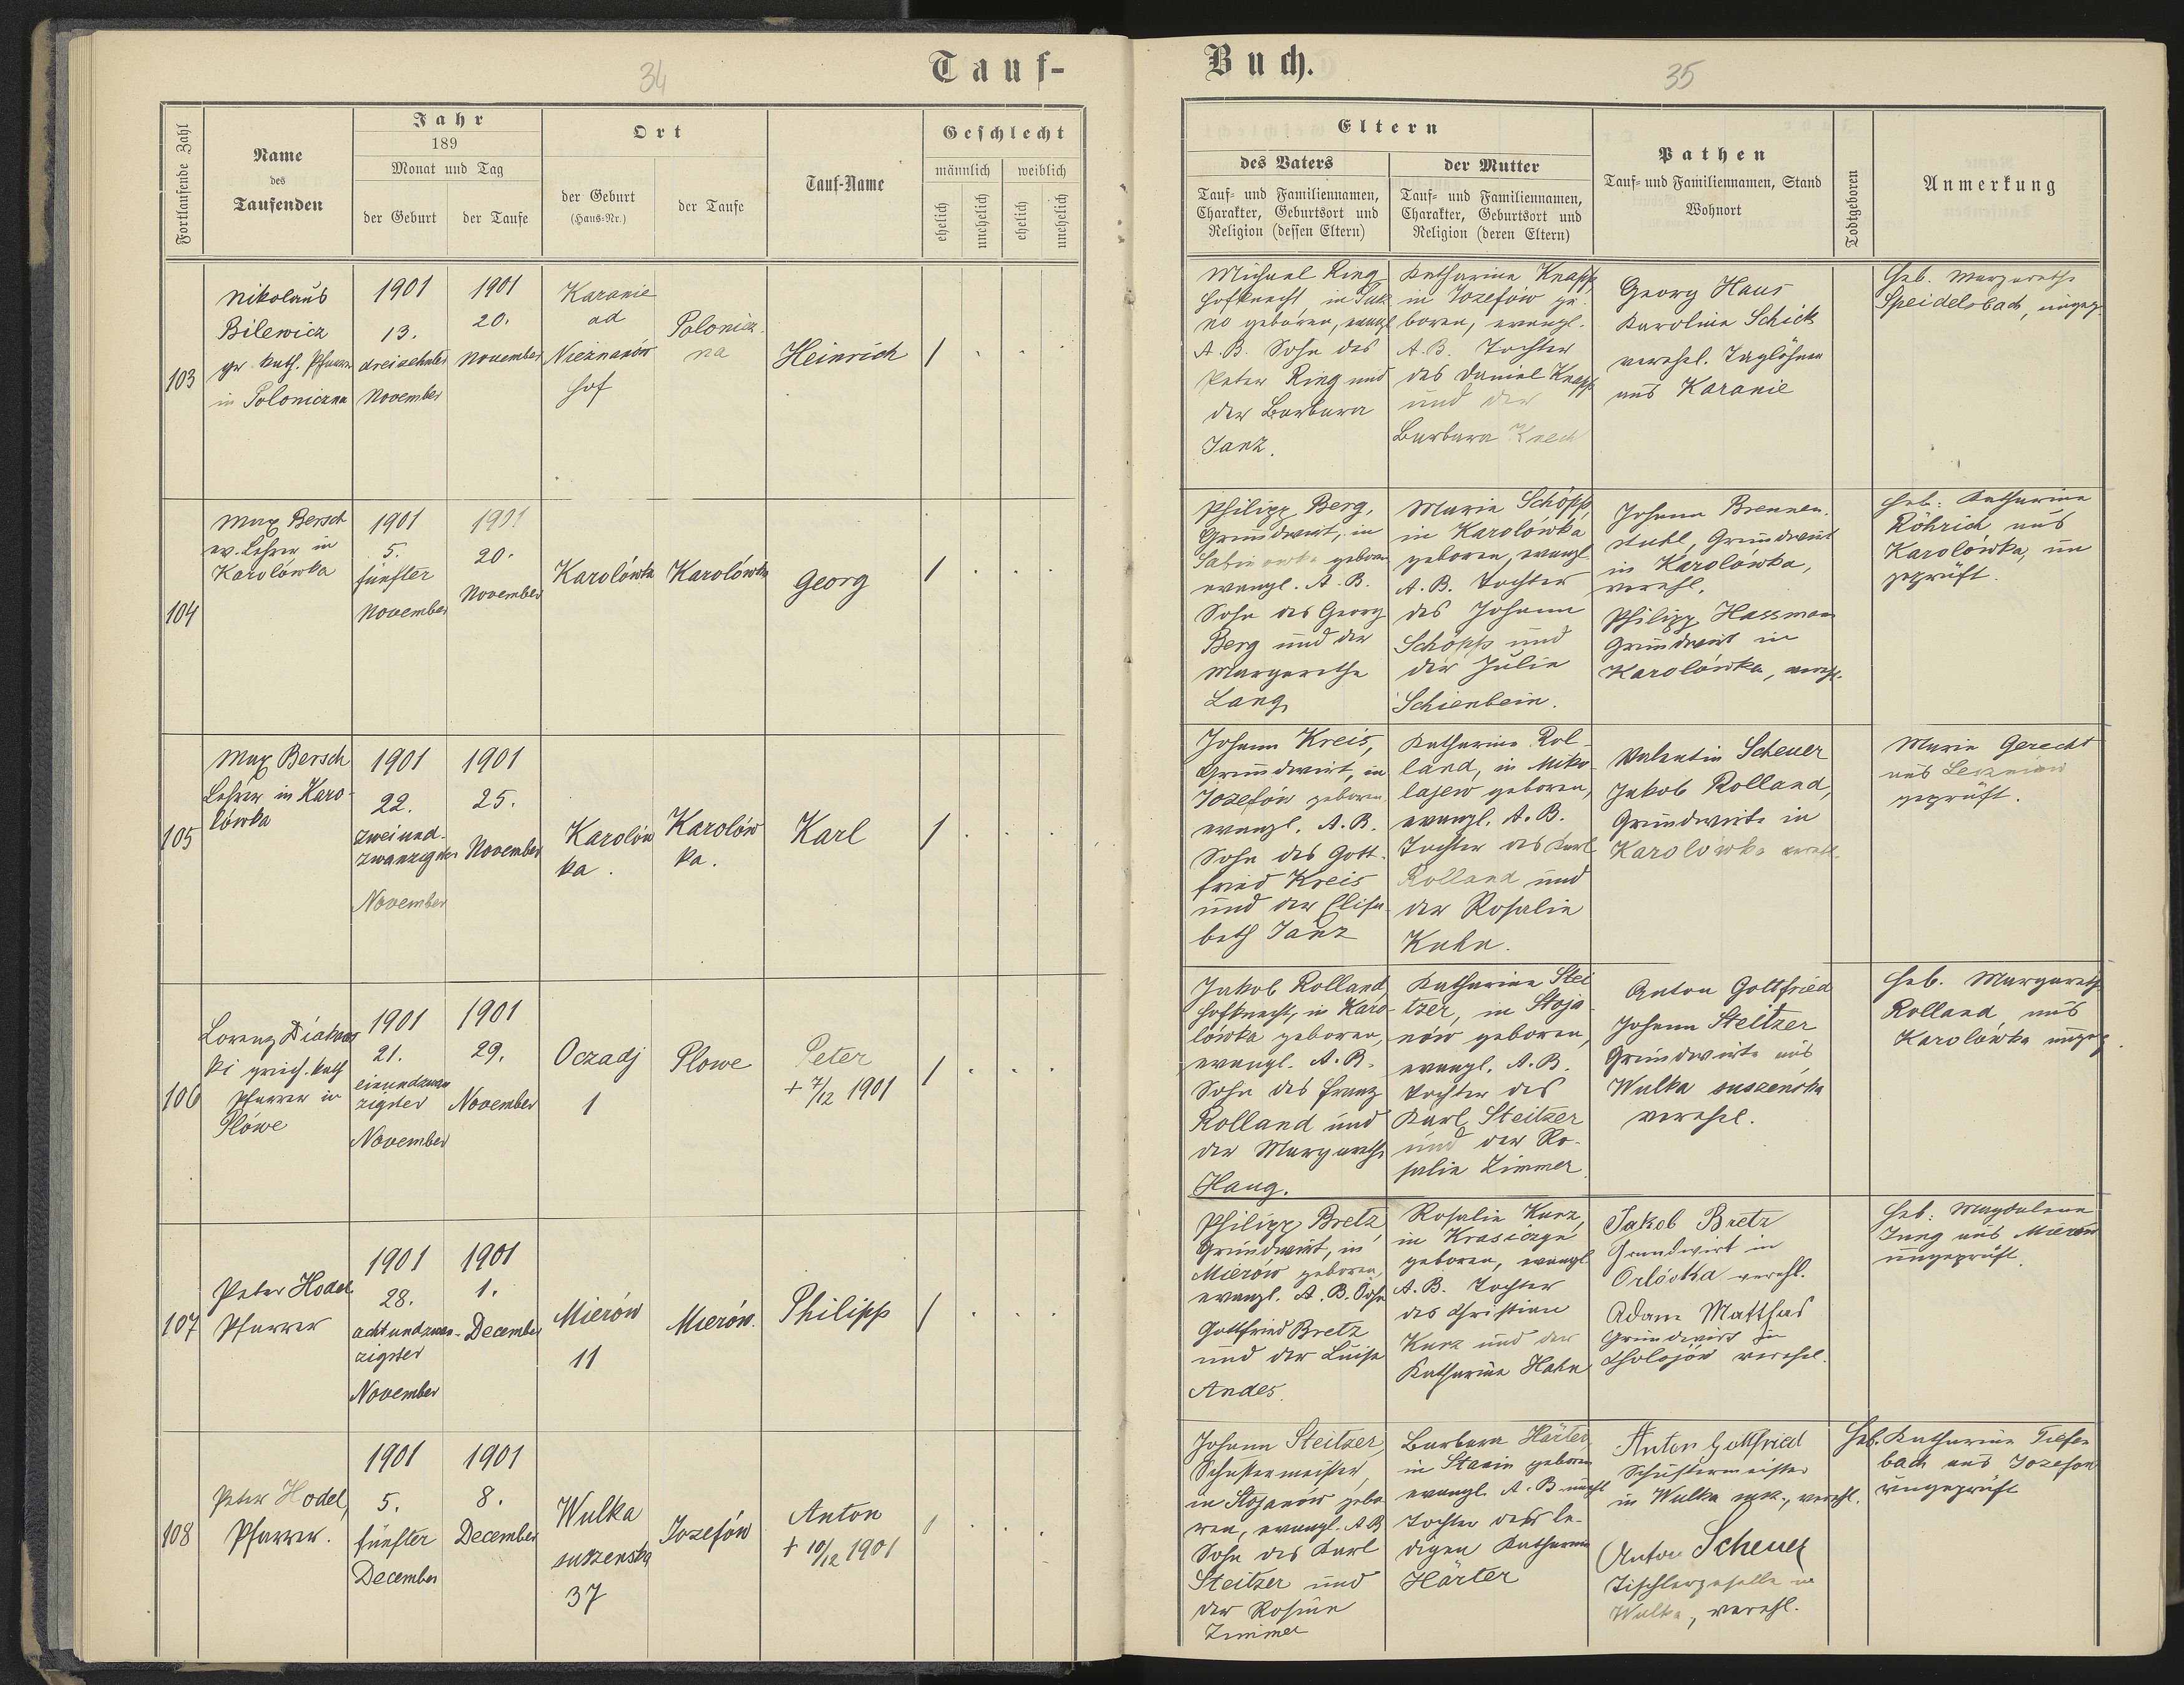 34
Tauf-
Fortlaufende Zahl
Name
des
Taufenden
Jahr
189
Monat und Tag
der Geburt
der Taufe
Ort
der Geburt
(Haus-Nr.)
der Taufe
Tauf-Name
Geschlecht
männlich
weiblich
ehelich
unehelich
ehelich
unehelich
103
Nikolaus
Bilewicz
gr. kath. Pfarrer
in Poloniczna
1901
13.
dreizehnter
November
1901
20.
November
Karanie
ad
Nieznanów
Hof
Polonicz-
na
Heinrich
104
Max Bersch
ev. Lehrer in
Karolówka
1901
5.
fünfter
November
1901
20.
November
Karolówka
Karolówka
Georg
105
Max Bersch
Lehrer in Karo-
lówka
1901
22.
zweiund-
zwanzigster
November
1901
25.
November
Karolów
ka.
Karolów
ka.
Karl
106
Lorenz Diakow
ki griech. kath
Pfarrer in
Plówe
1901
21.
einundzwan
zigster
November
1901
29.
November
Oczadj
1
Plowe
Peter
+ 7/12 1901
107
Peter Hodel
Pfarrer
1901
28.
achtundzwan-
zigster
November
1901
1.
December
Mierów
11
Mierów.
Philipp
108
Peter Hodel,
Pfarrer.
1901
5.
fünfter
December
1901
8.
December
Wulka
suszenska
37
Jozefów
Anton
+ 10/12 1901
Buch.
35
Eltern
des Vaters
Tauf- und Familiennamen,
Charakter, Geburtsort und
Religion (dessen Eltern)
der Mutter
Tauf- und Familiennamen,
Charakter, Geburtsort und
Religion (deren Eltern)
Pathen
Tauf- und Familiennamen, Stand
Wohnort
Todtgeboren
Anmerkung
Michael Ring
Hofknecht, in
no geboren, evangl
A. B. Sohn des
Peter Ring und
der Barbara
Janz.
Katharina Knapp,
in Jozefów ge-
boren, evangl.
A. B. Tochter
des Daniel Knapp
und der
Barbara Knech
Georg Haus
Karoline Schick
verehel. Taglöhner
aus Karanie
Heb. Margarethe
Speidelsbach, ungep.
Philipp Berg,
Grundwirt, in
Sabinowka geboren
evangl. A. B.
Sohn des Georg
Berg und der
Margarethe
Lang
Maria Schöpp,
in Karolówka
geboren, evangl.
A. B. Tochter
des Johann
Schöpp und
der Julie
Schienbein.
Johann Brennen-
stuhl, Grundwirt
in Karolówka,
verehl.
Philipp Hassman
Grundwirt in
Karolówka, verehl.
Heb. Katharina
Röhrich aus
Karolówka, un
geprüft.
Johann Kreis,
Grundwirt, in
Jozefów geboren
evangl. A. B.
Sohn des Gott-
fried Kreis
und der Elisa-
beth Janz
Katharina Rol-
land, in Miko-
lajew geboren,
evangl. A. B.
Tochter des Karl
Rolland und
der Rosalie
Kuhn.
Valentin Scheuer
Jakob Rolland,
Grundwirte in
Karolówka verehl.
Maria Gerecht
aus Leszniow
geprüft.
Jakob Rolland
Hofknecht, in Karo-
lówka geboren,
evangl. A. B.
Sohn des Franz
Rolland und
der Margarethe
Haug.
Katharina Stei
tzer, in Stoja-
nów geboren,
evangl. A. B.
Tochter des
Karl Steitzer
und der Ro-
salie Zimmer
Anton Gottfried
Johann Steltzer
Grundwirte aus
Wulka suszeńska
verehel.
Heb. Margareth
Rolland aus
Karolówka ungep.
Philipp Bretz
Grundwirt, in
Mierów geboren,
evangl. A. B. Sohn
Gottfried Bretz
und der Luise
Andes.
Rosalie Kurz,
in Krasiczyn
geboren, evangl.
A. B. Tochter
des Christian
Kurz und der
Katharina Hahn
Jakob Bretz
Grundwirt in
Orlóvka verehl.
Adam Matthas
Grundwirt in
Cholojów verehel.
Heb. Magdalena
Jung aus Mierów
ungeprüft.
Johann Steitzer,
Schustermeister,
in Stojanów gebo
ren, evangl. A B
Sohn des Karl
Steitzer und
der Rosine
Zimmer
Barbara Härter,
in Stanin geboren
evangl. A. B
Tochter der le-
digen Katharina
Härter
Anton Gottfried
Schustermeister
in Wulka verehl.
Anton Scheuer
Tischlergeselle in
Wulka, verehl.
Heb. Katharina Tiefen
bach aus Jozefow
ungeprüft